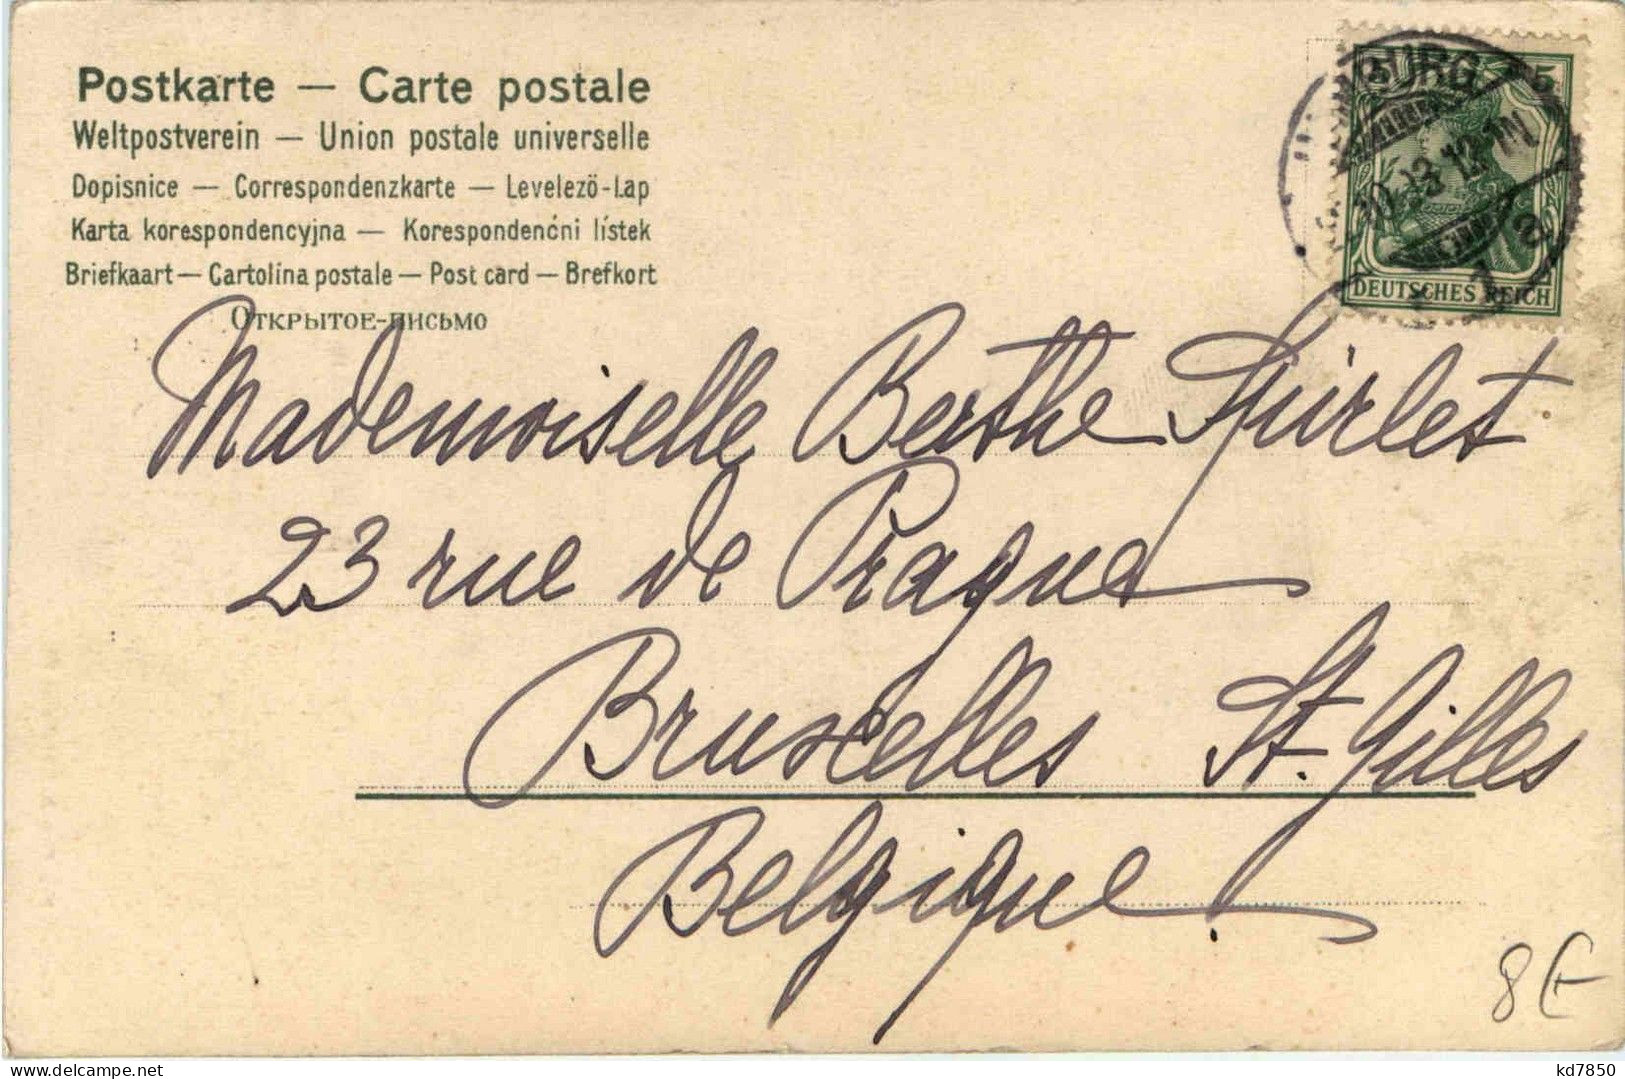 Postkarte — Carte postale
Weltpostverein — Union postale universelle
Dopisnice — Correspondenzkarte — Levelezö-Lap
Karta korespondencyjna — Korespondenčni lístek
Briefkaart — Cartolina postale — Post card — Brefkort
Открытое-письмо
5 5
BURG
12-1N
DEUTSCHES REICH
Mademoiselle Berthe Spirlet
23 rue de Prague
Bruxelles St. Gilles
Belgique
8 €
kd7850